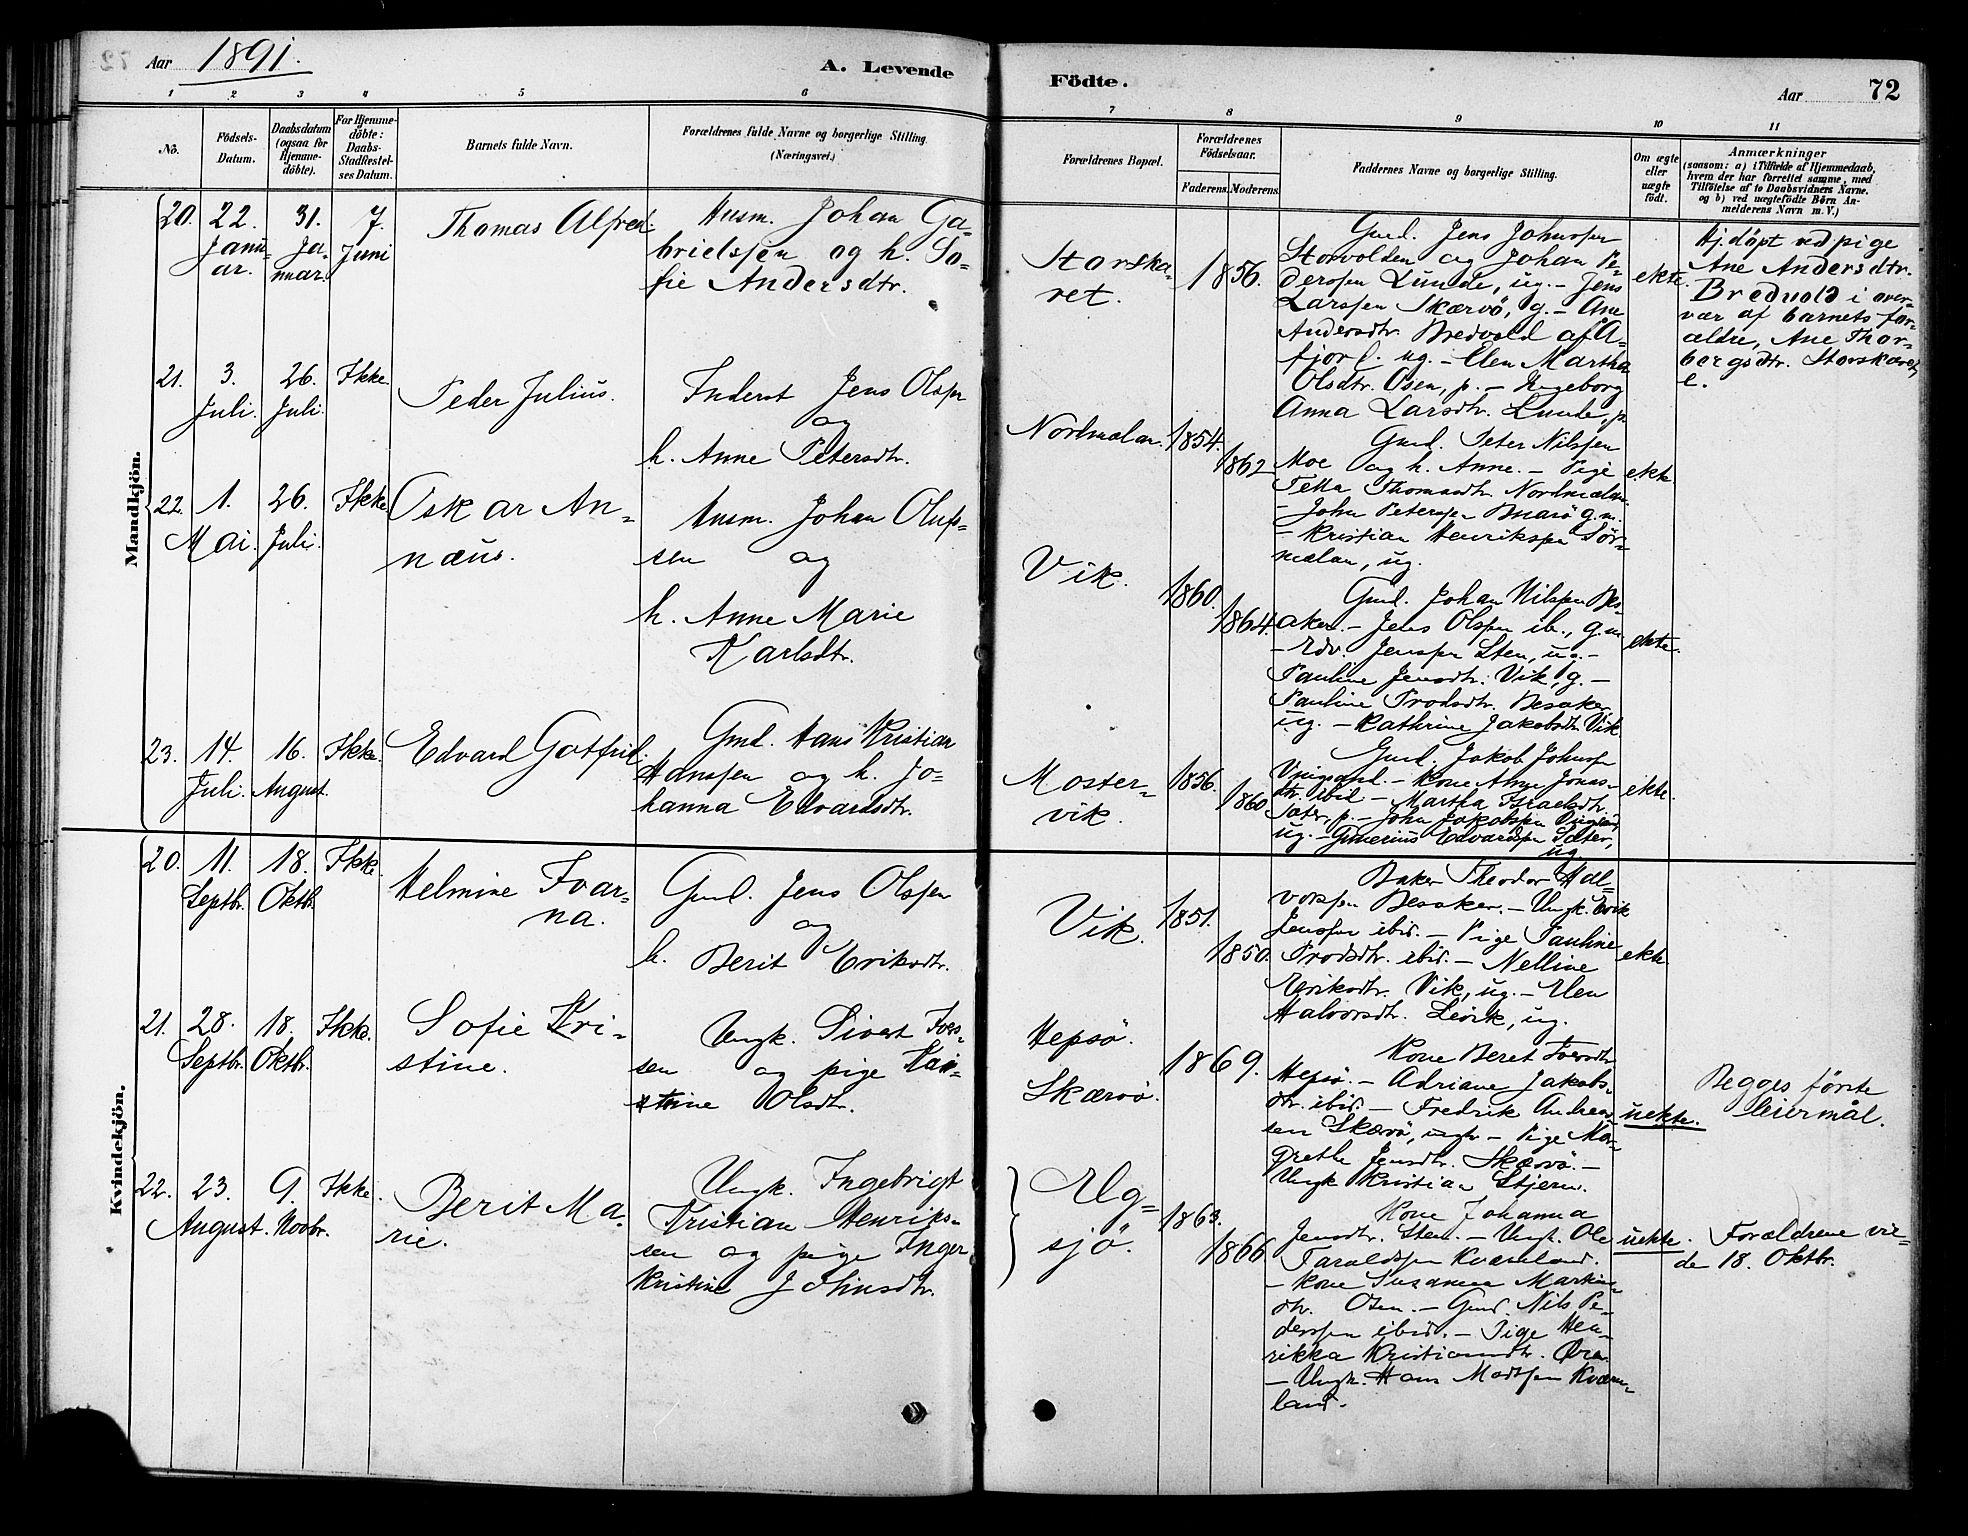 Aar 1891.
A. Levende
Födte.
Aar
72
1 2 3 4 5 6
7 8 9 10 11
No.
Födsels-
Datum.
Daabsdatum
(ogsaa for
Hjemme-
döbte).
For Hjemme-
döbte:
Daabs-
Stadfestel-
ses Datum.
Barnets fulde Navn.
Forældrenes fulde Navne og borgerlige Stilling.
(Næringsvei.)
Forældrenes Bopæl.
Forældrenes
Födselsaar.
Faderens. Moderens.
Faddernes Navne og borgerlige Stilling.
Om ægte
eller
uægte
födt.
Anmærkninger
(saasom: a) i Tilfælde af Hjemmedaab,
hvem der har forrettet samme, med
Tilföielse af to Daabsvidners Navne.
og b) ved uægtefödte Börn An-
melderens Navn m. V.)
Mandkjön.
20.
22.
Janu-
ar.
31.
Ja-
nuar.
7.
Juni
Thomas Alfred.
Husm. Johan Ga-
brielssen og h. So-
fie Andersdtr.
Storska-
ret.
1856.
Gmd. Jens Johnssen
Storvolden og Johan Pe-
derssen Lunde, ug. - Jens
Larssen Skærvö, g. - Ane
Andersdtr. Bredvold af A-
fjord. ug. - Elen Martha
Olsdtr. Osen, p. - Ingeborg
Anna Larsdtr. Lunde, p.
ekte.
Hj.döpt ved pige
Ane Andersdtr.
Bredvold i over-
vær af barnets for-
ældre, Ane Thor-
bergsdtr. Storskaret,
e.
21.
3.
Juli.
26.
Juli.
Ikke.
Peder Julius.
Inderst Jens Olsen
og
h. Anne Petersdtr.
Nordmelan.
1854.
1862
Gmd. Peter Nilssen
Moe og h. Anne. - Pige
Petra Thomasdtr. Nordmelan
- John Peterssen Buarö g.m.
- Kristian Henrikssen Sör-
melan, ug.
ekte
22.
1.
Mai.
26.
Juli.
Ikke
Oskar An-
næus.
Husm. Johan Olufs-
sen og
h. Anne Marie
Karlsdtr.
Vik.
1860.
1864.
Gmd. Johan Nilssen Bes-
aker. - Jens Olssen ib., g.m
- Edv. Jenssen Sten, ug. -
Pauline Jensdtr. Vik, g. -
Pauline Trodsdtr. Besaker,
ug. - Kathrine Jakobsdtr. Vik
ekte.
23.
14.
Juli.
16.
August.
Ikke.
Edvard Gotfrid.
Gmd. Hans Kristian
Hanssen og h. Jo-
hanna Edvardsdtr.
Moster-
vik.
1856.
1860.
Gmd. Jakob Johnssen
Vingsand. - Kone Anne Jonas-
dtr. ibid - Martha Israelsdtr.
Sæter, p. - John Jakobssen Vingsand,
ug. - Gunerius Edvardssen Sæter,
ug.
ekte.
Kvindekjön.
20.
11.
Septbr.
18.
Oktbr.
Ikke.
Helmine Ivar-
na.
Gmd. Jens Olssen
og
h. Berit Eriksdtr.
Vik.
1851.
1850.
Baker Theodor Hal-
vorssen Besaker. - Ungk. Erik
Jenssen ibid. - Pige Pauline
Trodsdtr. ibid. - Nelline
Eriksdtr. Vik, ug. - Elen
Halvorsdtr. Levik, ug.
ekte
21.
28.
Septbr.
18.
Oktbr.
Ikke.
Sofie Kri-
stine.
Ungk. Sivert Ivers-
sen og pige Kri-
stine Olsdtr.
Hepsö.
Skærvö.
1869.
Kone Beret Iversdtr.
Hepsö. - Adriane Jakobs-
dtr. ibid. - Fredrik Andreas-
sen Skærvö, ungk. - Pige Mar-
grethe Jensdtr. Skærvö. -
Ungk Kristian Stjern.
uekte.
Begges förste
leiermål.
22.
23.
August.
9.
Novbr.
Ikke.
Berit Ma-
rie.
Ungk. Ingebrigt
Kristian Henriks-
sen og pige Inger
Kristine Johnsdtr.
Elg-
sjö.
1863.
1866
Kone Johanna
Jensdtr. Sten. - Ungk. Ole
Taraldssen Kvarnland.
- Kone Susanna Martins-
dtr. Osen. - Gmd. Nils Pe-
derssen ibid. - Pige Hen-
rikka Kristiansdtr. Øra.
- Ungk. Hans Madssen Kværn-
land.
uekte.
Forældrene vie-
de 18. Oktbr.